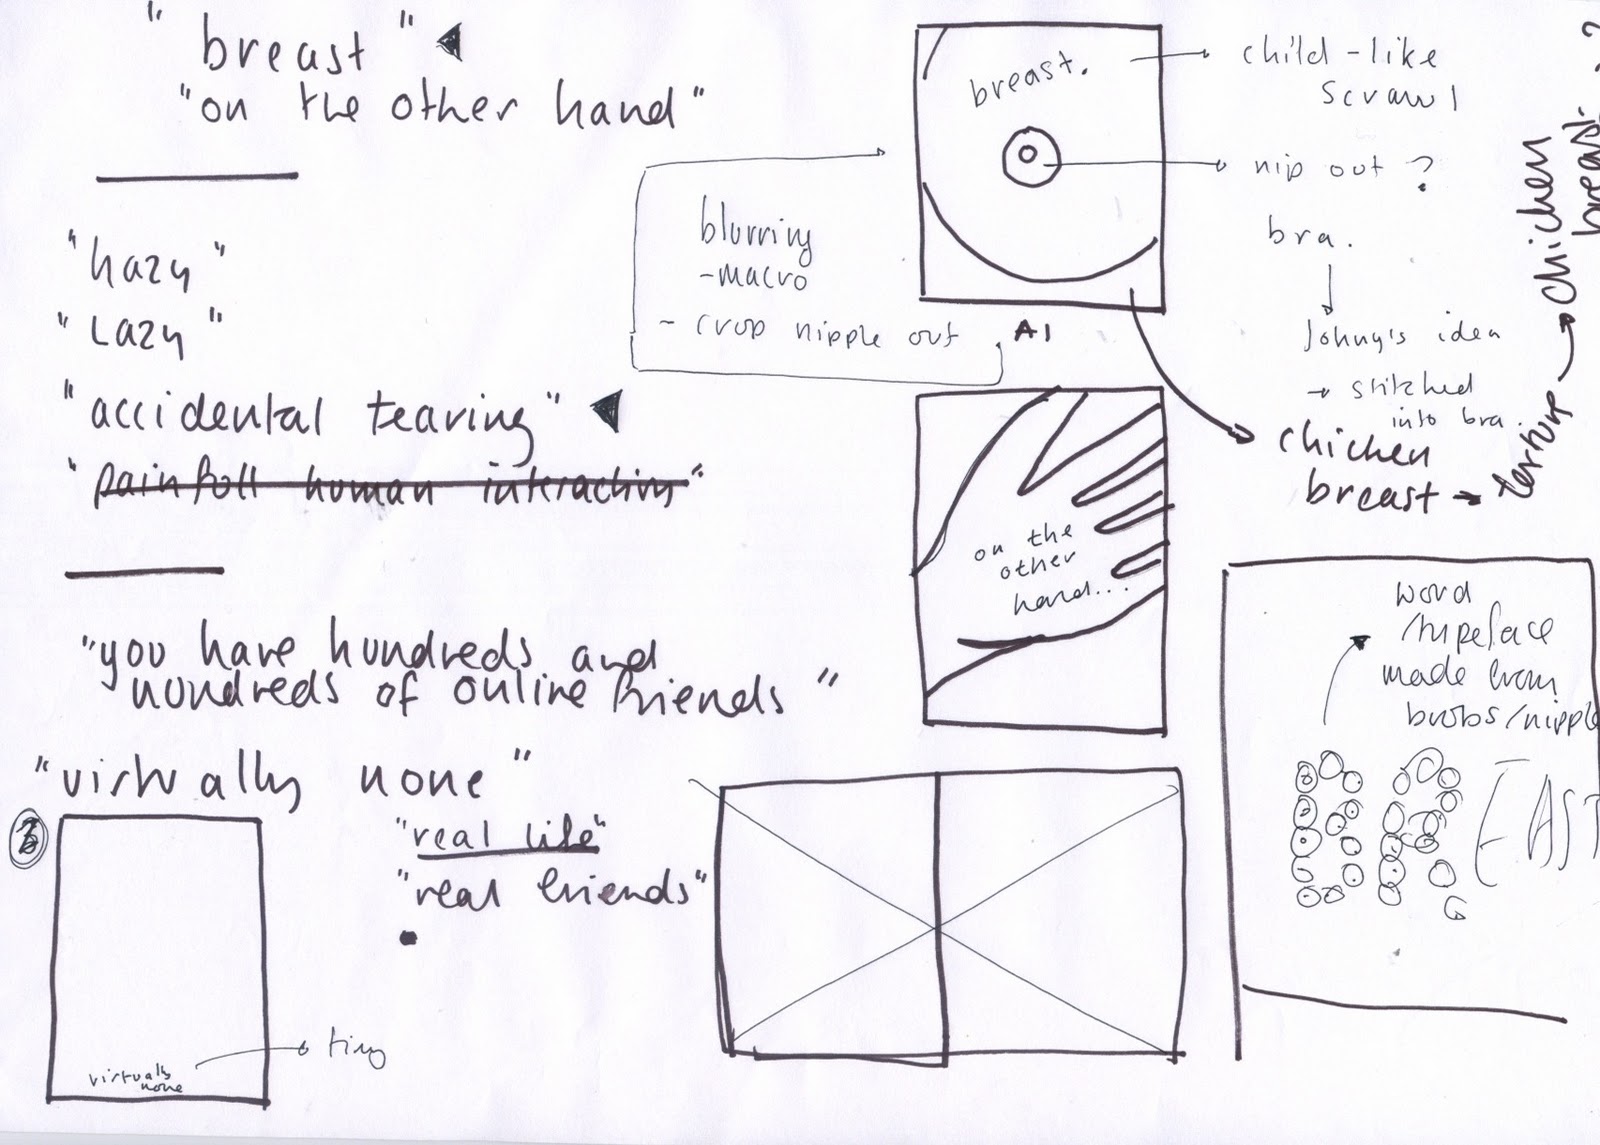 "breast"
"on the other hand"
"hazy"
"Lazy"
"accidental tearing"
"painfull human interactions"
"you have hundreds and
hundreds of online friends"
"virtually none"
"real life"
"real friends"
virtually
none
tiny
blurring
-macro
- crop nipple out
A1
breast.
child-like
scrawl
nip out ?
bra.
Johny's idea
→ stitched
into bra.
chicken
breast →
texture →
chicken
breast.
?
on the
other
hand...
word
/typeface
made from
boobs/nipple
BREAST